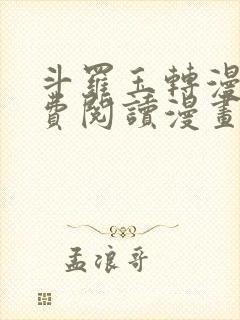 斗羅玉轉漫
費閱讀漫畫
孟浪哥